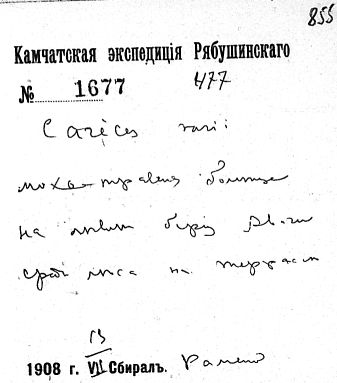 855
Камчатская экспедиція Рябушинскаго
№ 1677 477
Carices rarii
мохо-травяное болотце
на лѣвом берегу
среди лѣса на террасѣ
13
1908 г. VII Сбиралъ. Раменс